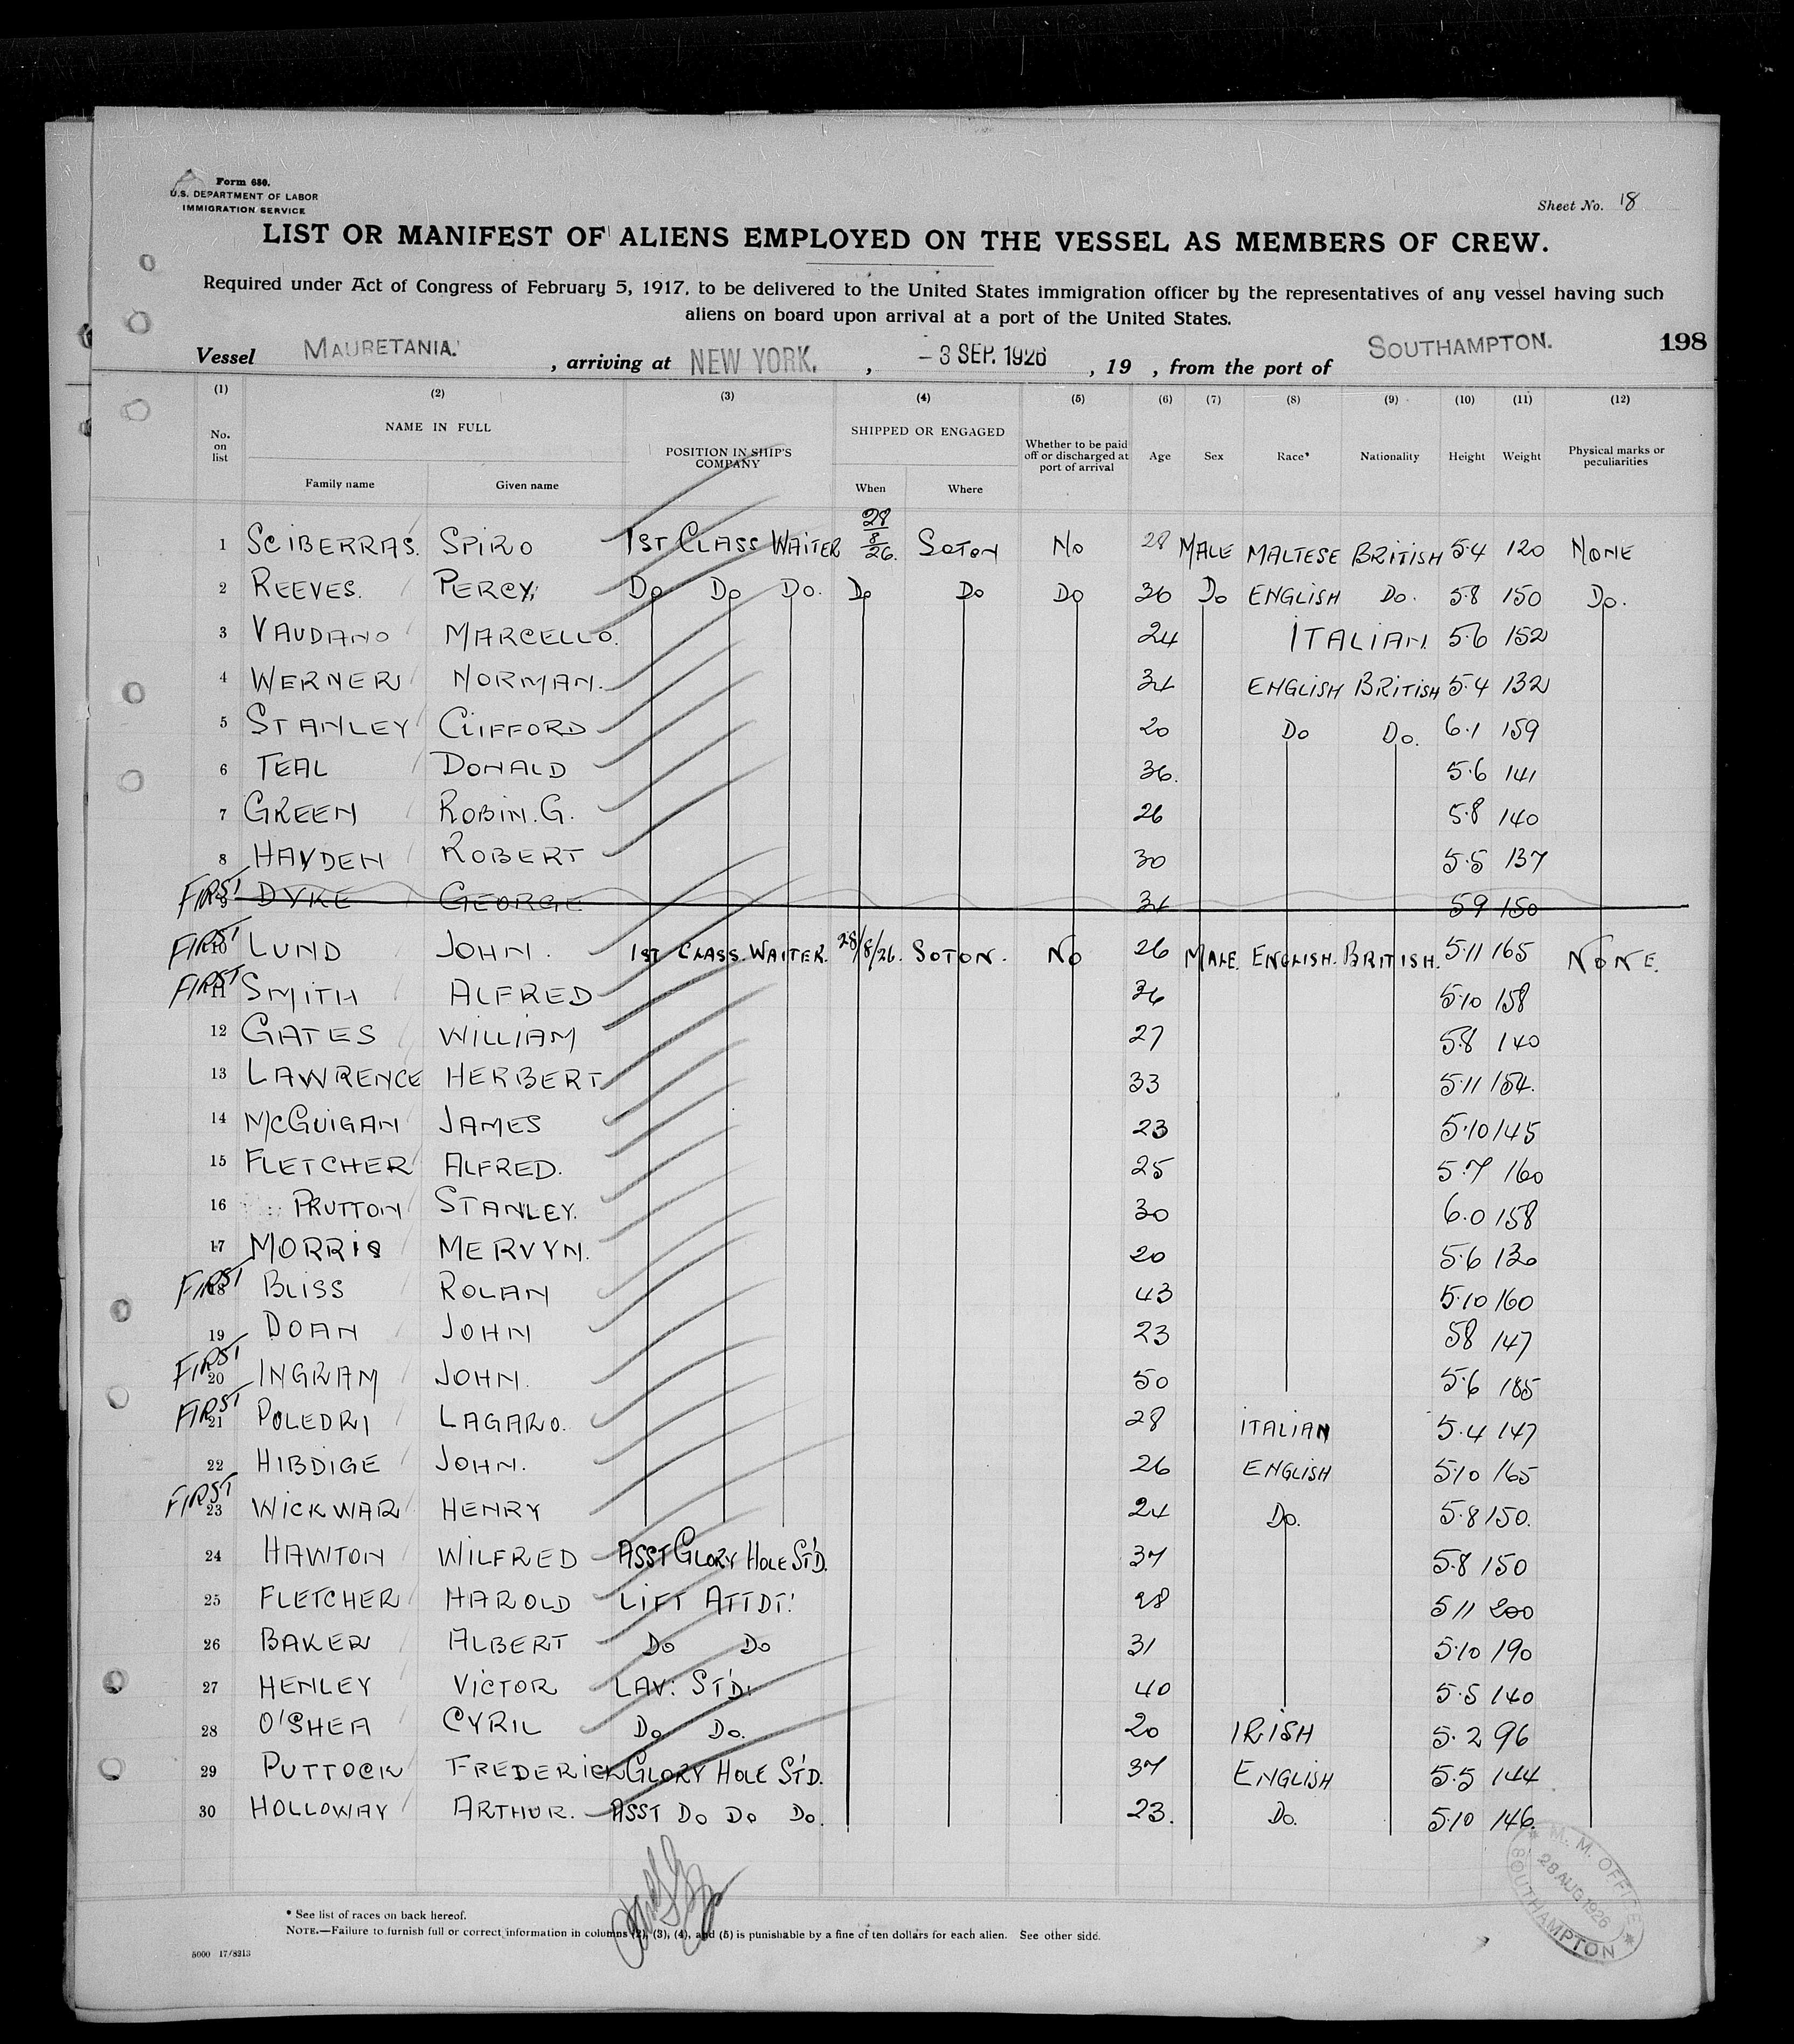 Form 680.
U.S. DEPARTMENT OF LABOR
IMMIGRATION SERVICE
Sheet No. 18
LIST OR MANIFEST OF ALIENS EMPLOYED ON THE VESSEL AS MEMBERS OF CREW.
Required under Act of Congress of February 5, 1917, to be delivered to the United States immigration officer by the representatives of any vessel having such
aliens on board upon arrival at a port of the United States.
Vessel MAURETANIA. , arriving at NEW YORK. , - 3 SEP. 1926 , 19 , from the port of SOUTHAMPTON. 198
(1) (2) (3) (4) (5) (6) (7) (8) (9) (10) (11) (12)
No. on list NAME IN FULL Family name Given name POSITION IN SHIP'S COMPANY SHIPPED OR ENGAGED When Where Whether to be paid off or discharged at port of arrival Age Sex Race* Nationality Height Weight Physical marks or peculiarities
1 SCIBERRAS. SPIRO 1ST CLASS WAITER 28/8/26. SOTON NO 28 MALE MALTESE BRITISH 5.4 120 NONE
2 REEVES. PERCY. DO DO DO. DO DO DO 36 DO ENGLISH DO. 5.8 150 DO.
3 VAUDANO MARCELLO. 24 ITALIAN. 5.6 152
4 WERNER NORMAN. 34 ENGLISH BRITISH 5.4 132
5 STANLEY CLIFFORD 20 DO DO. 6.1 159
6 TEAL DONALD 36. 5.6 141
7 GREEN ROBIN. G. 26 5.8 140
8 HAYDEN ROBERT 30 5.5 137
FIRST 9 DYKE GEORGE 34 5.9 150
FIRST 10 LUND JOHN. 1ST CLASS WAITER. 28/8/26. SOTON. NO 26 MALE. ENGLISH. BRITISH. 5.11 165 NONE.
FIRST 11 SMITH ALFRED 36 5.10 158
12 GATES WILLIAM 27 5.8 140
13 LAWRENCE HERBERT 33 5.11 154.
14 MCGUIGAN JAMES 23 5.10 145
15 FLETCHER ALFRED. 25 5.7 160
16 PRUTTON STANLEY. 30 6.0 158
17 MORRIS MERVYN. 20 5.6 130
FIRST 18 BLISS ROLAN 43 5.10 160
19 DOAN JOHN 23 5.8 147
FIRST 20 INGRAM JOHN. 50 5.6 185
FIRST 21 POLEDRI LAGARO. 28 ITALIAN 5.4 147
22 HIBDIGE JOHN. 26 ENGLISH 5.10 165
FIRST 23 WICKWAR HENRY 24 DO. 5.8 150.
24 HAWTON WILFRED ASST GLORY HOLE ST'D. 37 5.8 150
25 FLETCHER HAROLD LIFT ATTDT. 28 5 11 200
26 BAKER ALBERT DO DO 31 5.10 190
27 HENLEY VICTOR LAV: ST'D. 40 5.5 140
28 O'SHEA CYRIL DO DO. 20 IRISH 5.2 96
29 PUTTOCK FREDERICK GLORY HOLE ST'D. 37 ENGLISH 5.5 144
30 HOLLOWAY ARTHUR. ASST DO DO DO. 23. DO. 5.10 146.
M. M. OFFICE
28 AUG 1926
SOUTHAMPTON
* See list of races on back hereof.
NOTE.—Failure to furnish full or correct information in columns (2), (3), (4), and (5) is punishable by a fine of ten dollars for each alien. See other side.
5000 17/8213